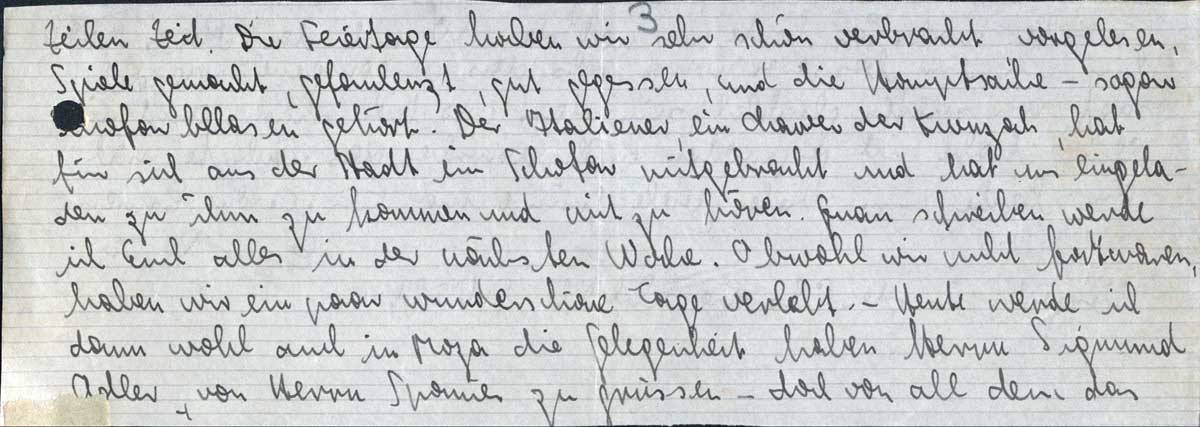 3
Zeilen Zeit. Die Feiertage haben wir sehr schön verbracht vorgelesen,
Spiele gemacht, gefaulenzt, gut gegessen, und die Hauptsache – sogar
Schofar bllasen gehört. Der Italiener, ein Chawer der Kwuzah, hat
für sich aus der Stadt ein Schofar mitgebracht und hat uns eingela-
den zu ihm zu kommen und mit zu hören. Genau schreiben werde
ich Euch alles in der nächsten Woche. Obwohl wir nicht fortwaren,
haben wir ein paar wunderschöne Tage verlebt. – Heute werde ich
dann wohl auch in Moza die Gelegenheit haben Herrn Sigmund
Adler, von Herrn zu grüssen – doch von all dem das